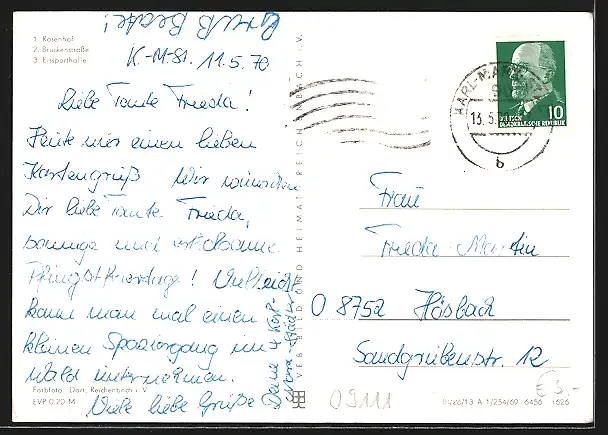 Gruß Beate!
1. Rosenhof
2. Brückenstraße
3. Eissporthalle
K.-M.-St. 11.5.70
Liebe Tante Frieda!
Heute nur einen lieben
Kartengruß Wir wünschen
Dir liebe Tante Frieda,
sonnige und erholsame
Pfingstfeiertage! Vielleicht
kann man mal einen
kleinen Spaziergang im
Wald unternehmen.
Viele liebe Grüße
Deine 4 Karl-
Marx-Städter
Farbfoto: Darr, Reichenbach i. V.
EVP 0,20 M
VEB BILD UND HEIMAT REICHENBACH I. V.
KARL-MARX-
9
13.5.
b
10
DEUTSCHE
DEMOKRATISCHE REPUBLIK
Frau
Frieda Martin
8752 Hösbach
Sandgrubenstr. 12
09111
€ 5.-
A 1/254/69 6456 1626